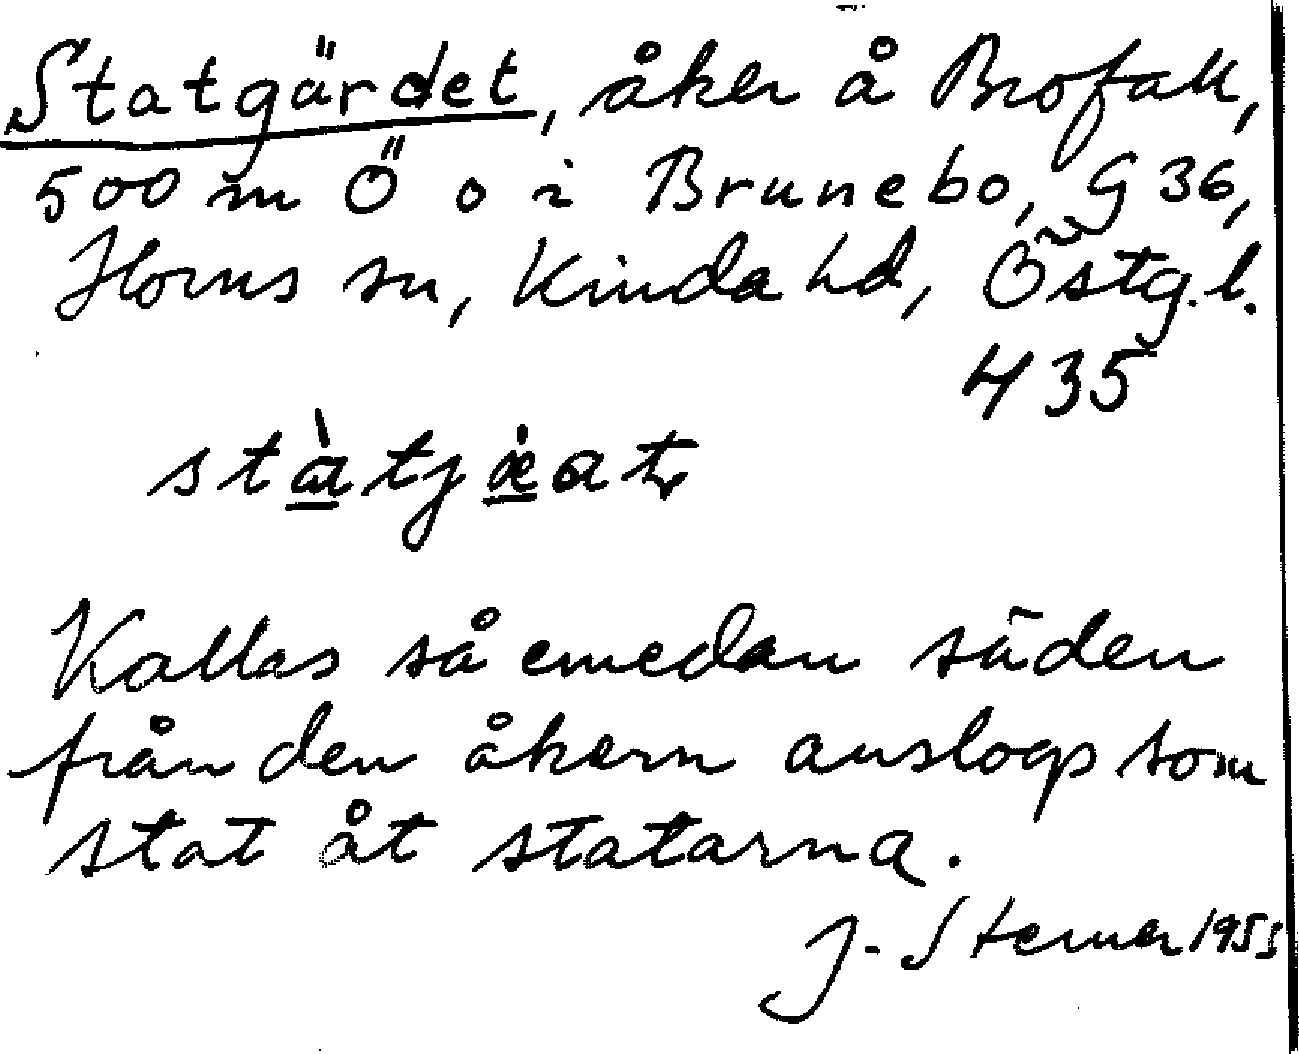 Statgärdet, åker å Brofall,
500 m Ö o i Brunebo, G 36,
Horns sn, Kinda hd, Östg.l.
435
Kallas så emedan säden
från den åkern anslogs som
stat åt statarna.
J. Sterner 1955